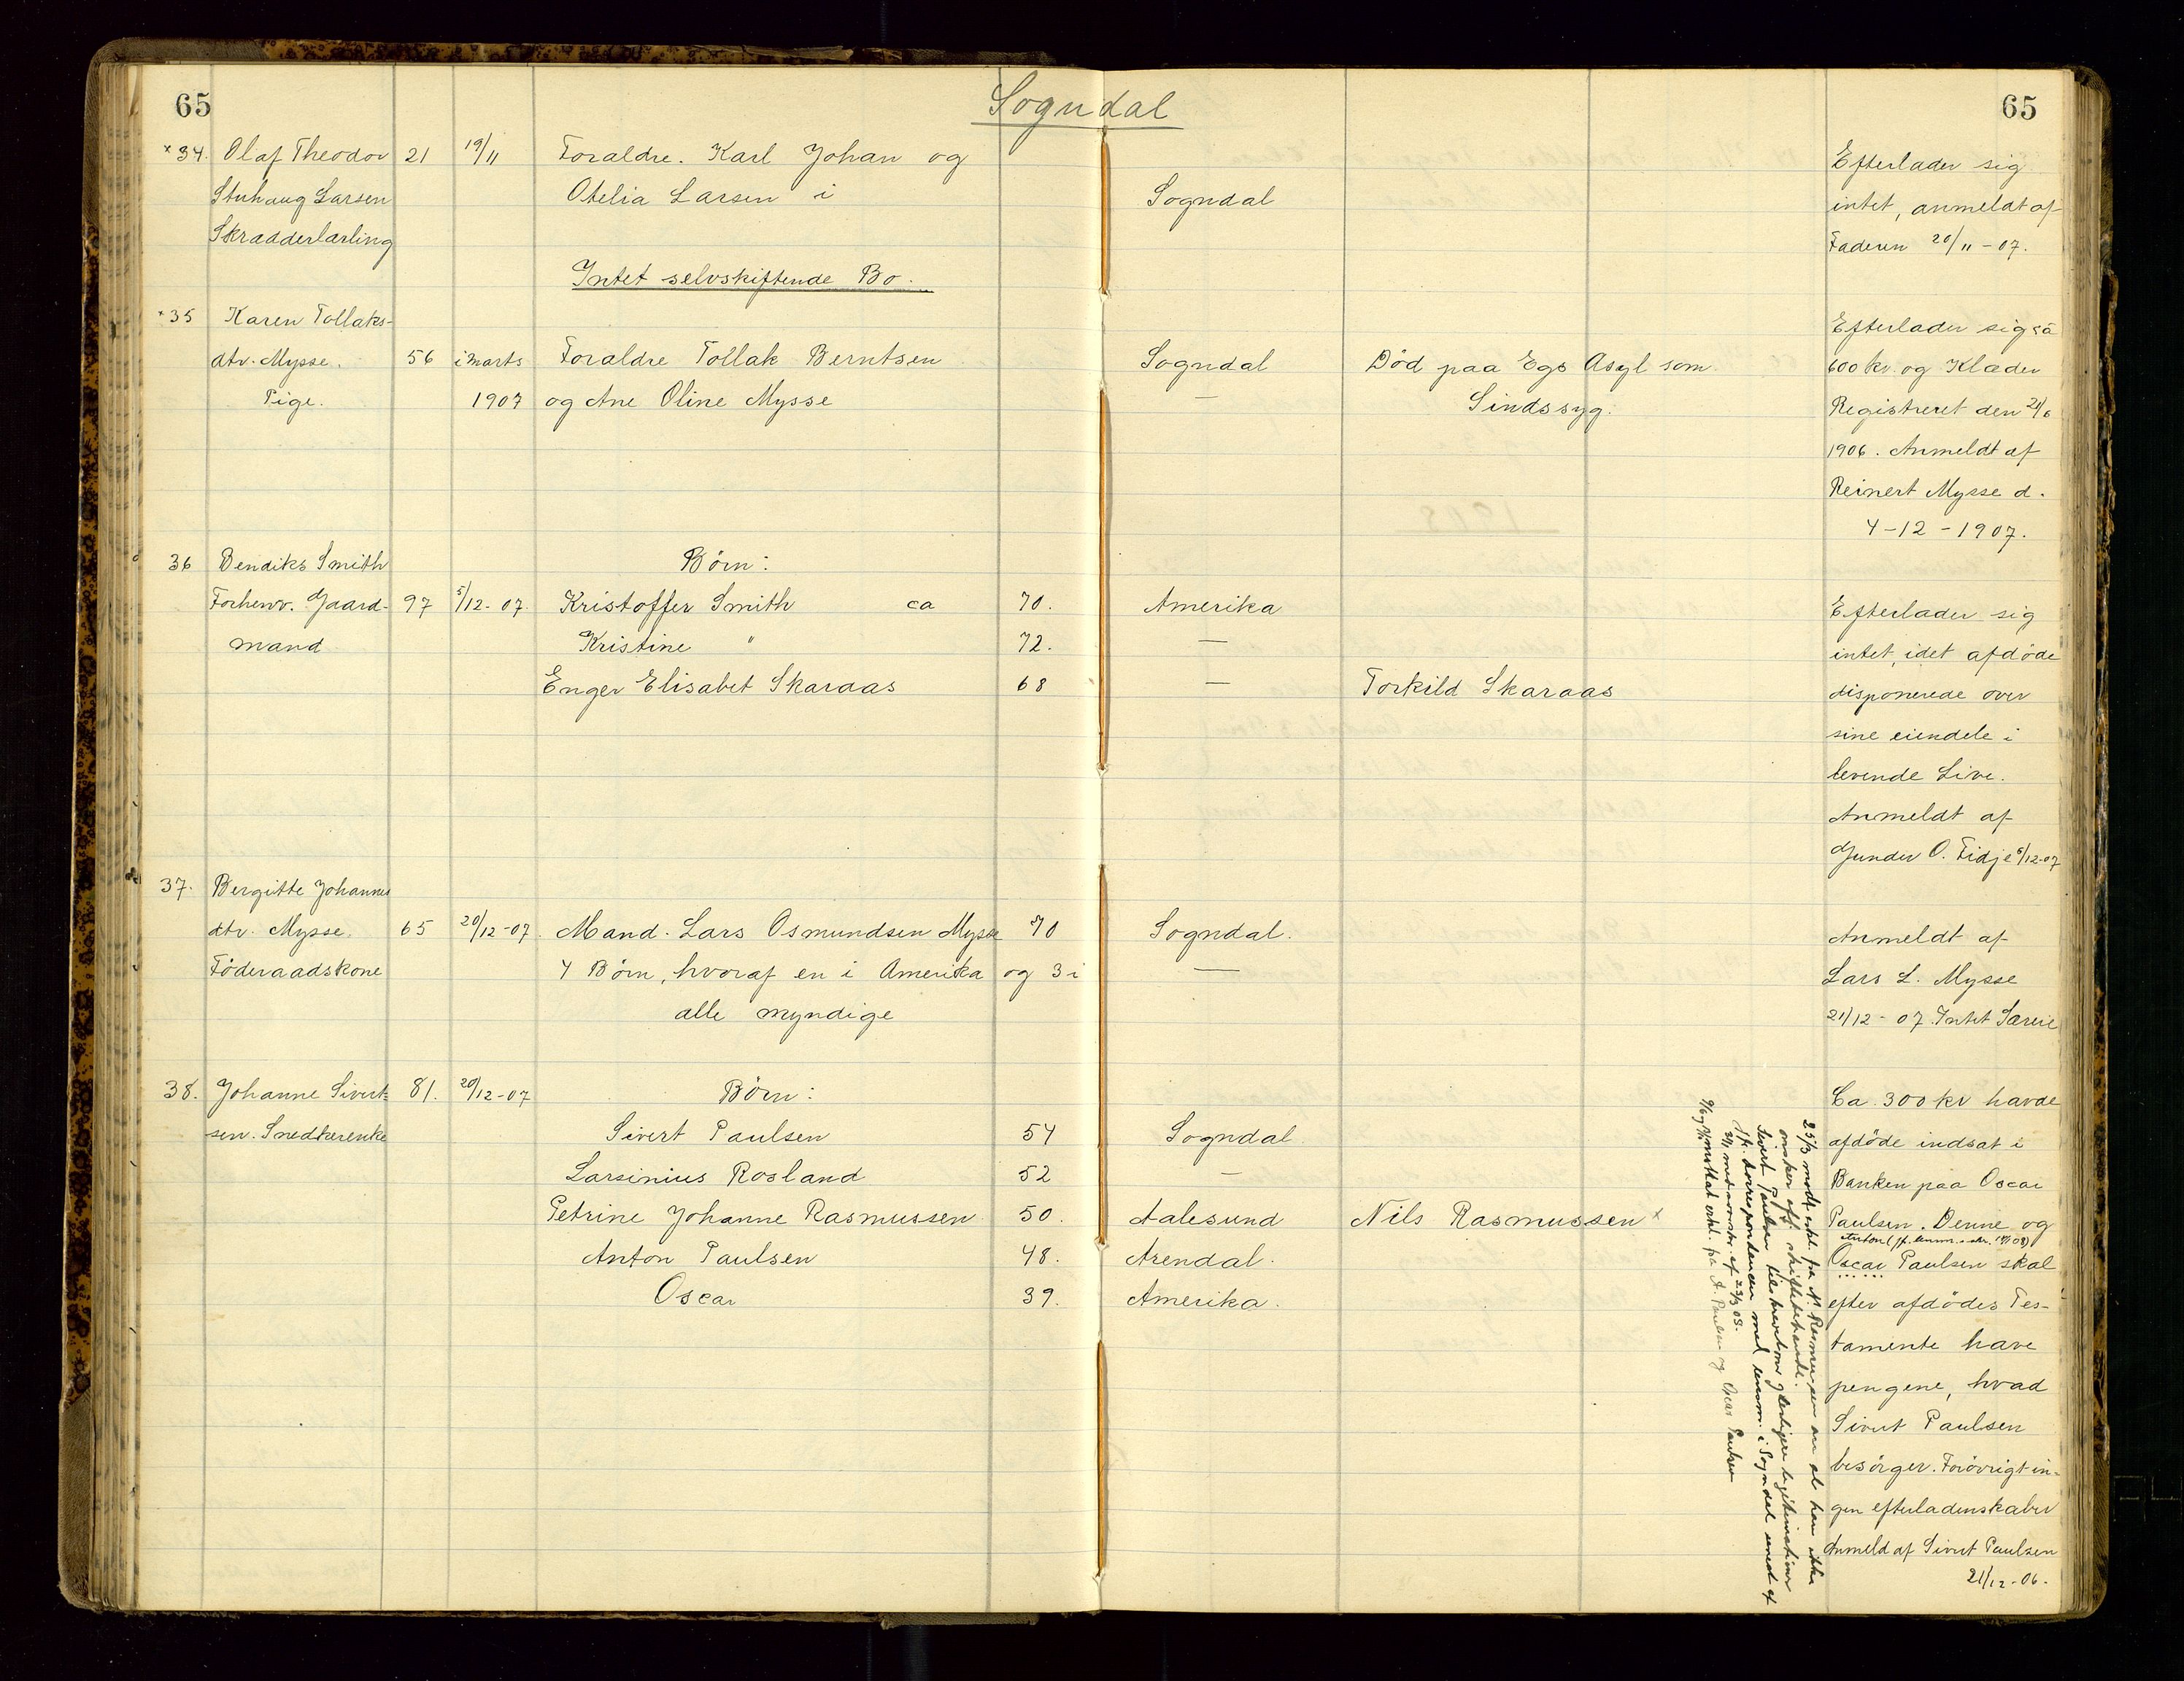 65
Sogndal
65
×34. Olaf Theodor 21 19/11 Foraldre. Karl Johan og Efterlader sig
Stuhaug Larsen Otelia Larsen i Sogndal intet, anmeldt af
Skradderlarling Faderen 20/11-07.
Intet selvskiftende Bo.
×35 Karen Tollaks- Efterlader sig ca
dtr. Mysse. 56 i Marts Foraldre Tollak Berntsen Sogndal Død paa Egs Asyl som 600 kr. og Klæder
Pige. 1907 og Ane Oline Mysse — Sindssyg. Registreret den 21/6
1906. Anmeldt af
Reinert Mysse d.
4-12-1907.
36 Bendiks Smith Børn:
Forhenv. Gaard- 97 5/12-07. Kristoffer Smith ca 70. Amerika Efterlader sig
mand Kristine " 72. — intet, idet afdöde
Enger Elisabet Skaraas 68 — Torkild Skaraas disponerede over
sine eiendele i
levende Live.
Anmeldt af
Gunder O. Fidje 5/12-07
37. Bergitte Johannes
dtr. Mysse. 65 20/12-07. Mand. Lars Osmundsen Mysse 70 Sogndal. Anmeldt af
Föderaadskone 4 Börn, hvoraf en i Amerika og 3 i — Lars L. Mysse
alle myndige 21/12-07. Intet Særeie
38. Johanne Sivert- 81. 20/12-07 Börn: Ca. 300 kr havde
sen. Snedkerenke Sivert Paulsen 54 Sogndal. afdöde indsat i
Larsinius Rosland 52 — Banken paa Oscar
Petrine Johanne Rasmussen 50. Aalesund Nils Rasmussen × Paulsen. Denne og
Anton (jf.
Anton Paulsen 48. Arendal. Oscar Paulsen skal
Oscar 39. Amerika. efter afdödes Tes-
tamente have
pengene, hvad
Sivert Paulsen
besörger. Forövrigt in-
gen efterladenskaber
Anmeld af Sivert Paulsen
21/12-06.
25/3 modt. erkl. fra N. Rasmussen om at han ikke
önsker off. skiftebehandl.
Sivert Paulsen
Jfr. korrespondancen med lensm. i Sogndal
mottat erkl. fra A. Paulsen og Oscar Paulsen